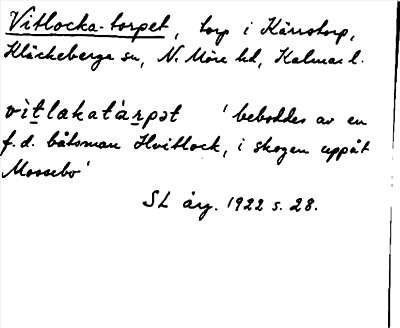 Vitlocka-torpet, torp i Kärrstorp,
Kläckeberga sn, N. Möre hd, Kalmar l.
vìt̲lakatàr̲pət 'beboddes av en
f.d. båtsman Hvitlock, i skogen uppåt
Mossebo'
SL årg. 1922 s. 28.